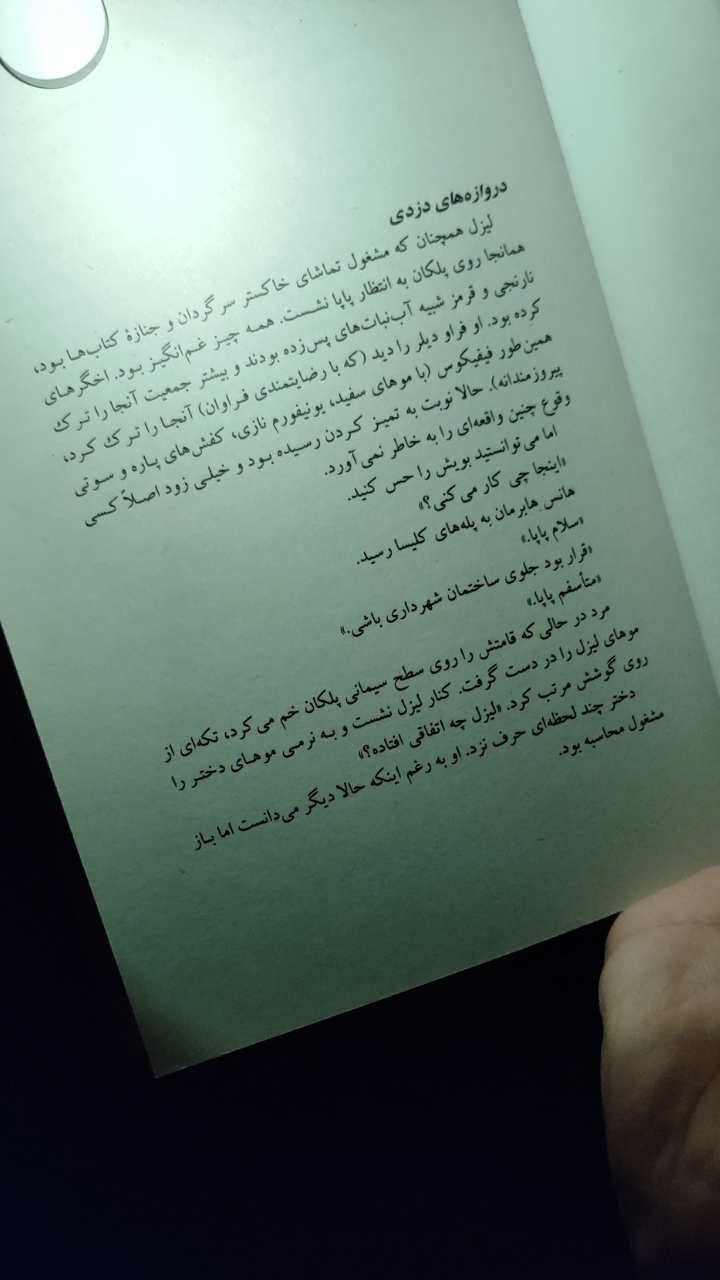 دروازه‌های دزدی
لیزل همچنان که مشغول تماشای خاکستر سرگردان و جنازۀ کتاب‌ها بود،
همانجا روی پلکان به انتظار پاپا نشست. همه چیز غم‌انگیز بود. اخگرهای
نارنجی و قرمز شبیه آب‌نبات‌های پس‌زده بودند و بیشتر جمعیت آنجا را ترک
کرده بود. او فراو دیلر را دید (که با رضایتمندی فراوان) آنجا را ترک کرد،
همین‌طور فیفیکوس (با موهای سفید، یونیفورم نازی، کفش‌های پاره و سوتی
پیروزمندانه). حالا نوبت به تمیز کردن رسیده بود و خیلی زود اصلاً کسی
وقوع چنین واقعه‌ای را به خاطر نمی‌آورد.
اما می‌توانستید بویش را حس کنید.
«اینجا چی کار می‌کنی؟»
هانس هابرمان به پله‌های کلیسا رسید.
«سلام پاپا.»
«قرار بود جلوی ساختمان شهرداری باشی.»
«متأسفم پاپا.»
مرد در حالی که قامتش را روی سطح سیمانی پلکان خم می‌کرد، تکه‌ای از
موهای لیزل را در دست گرفت. کنار لیزل نشست و به نرمی موهای دختر را
روی گوشش مرتب کرد. «لیزل چه اتفاقی افتاده؟»
دختر چند لحظه‌ای حرف نزد. او به رغم اینکه حالا دیگر می‌دانست اما باز
مشغول محاسبه بود.